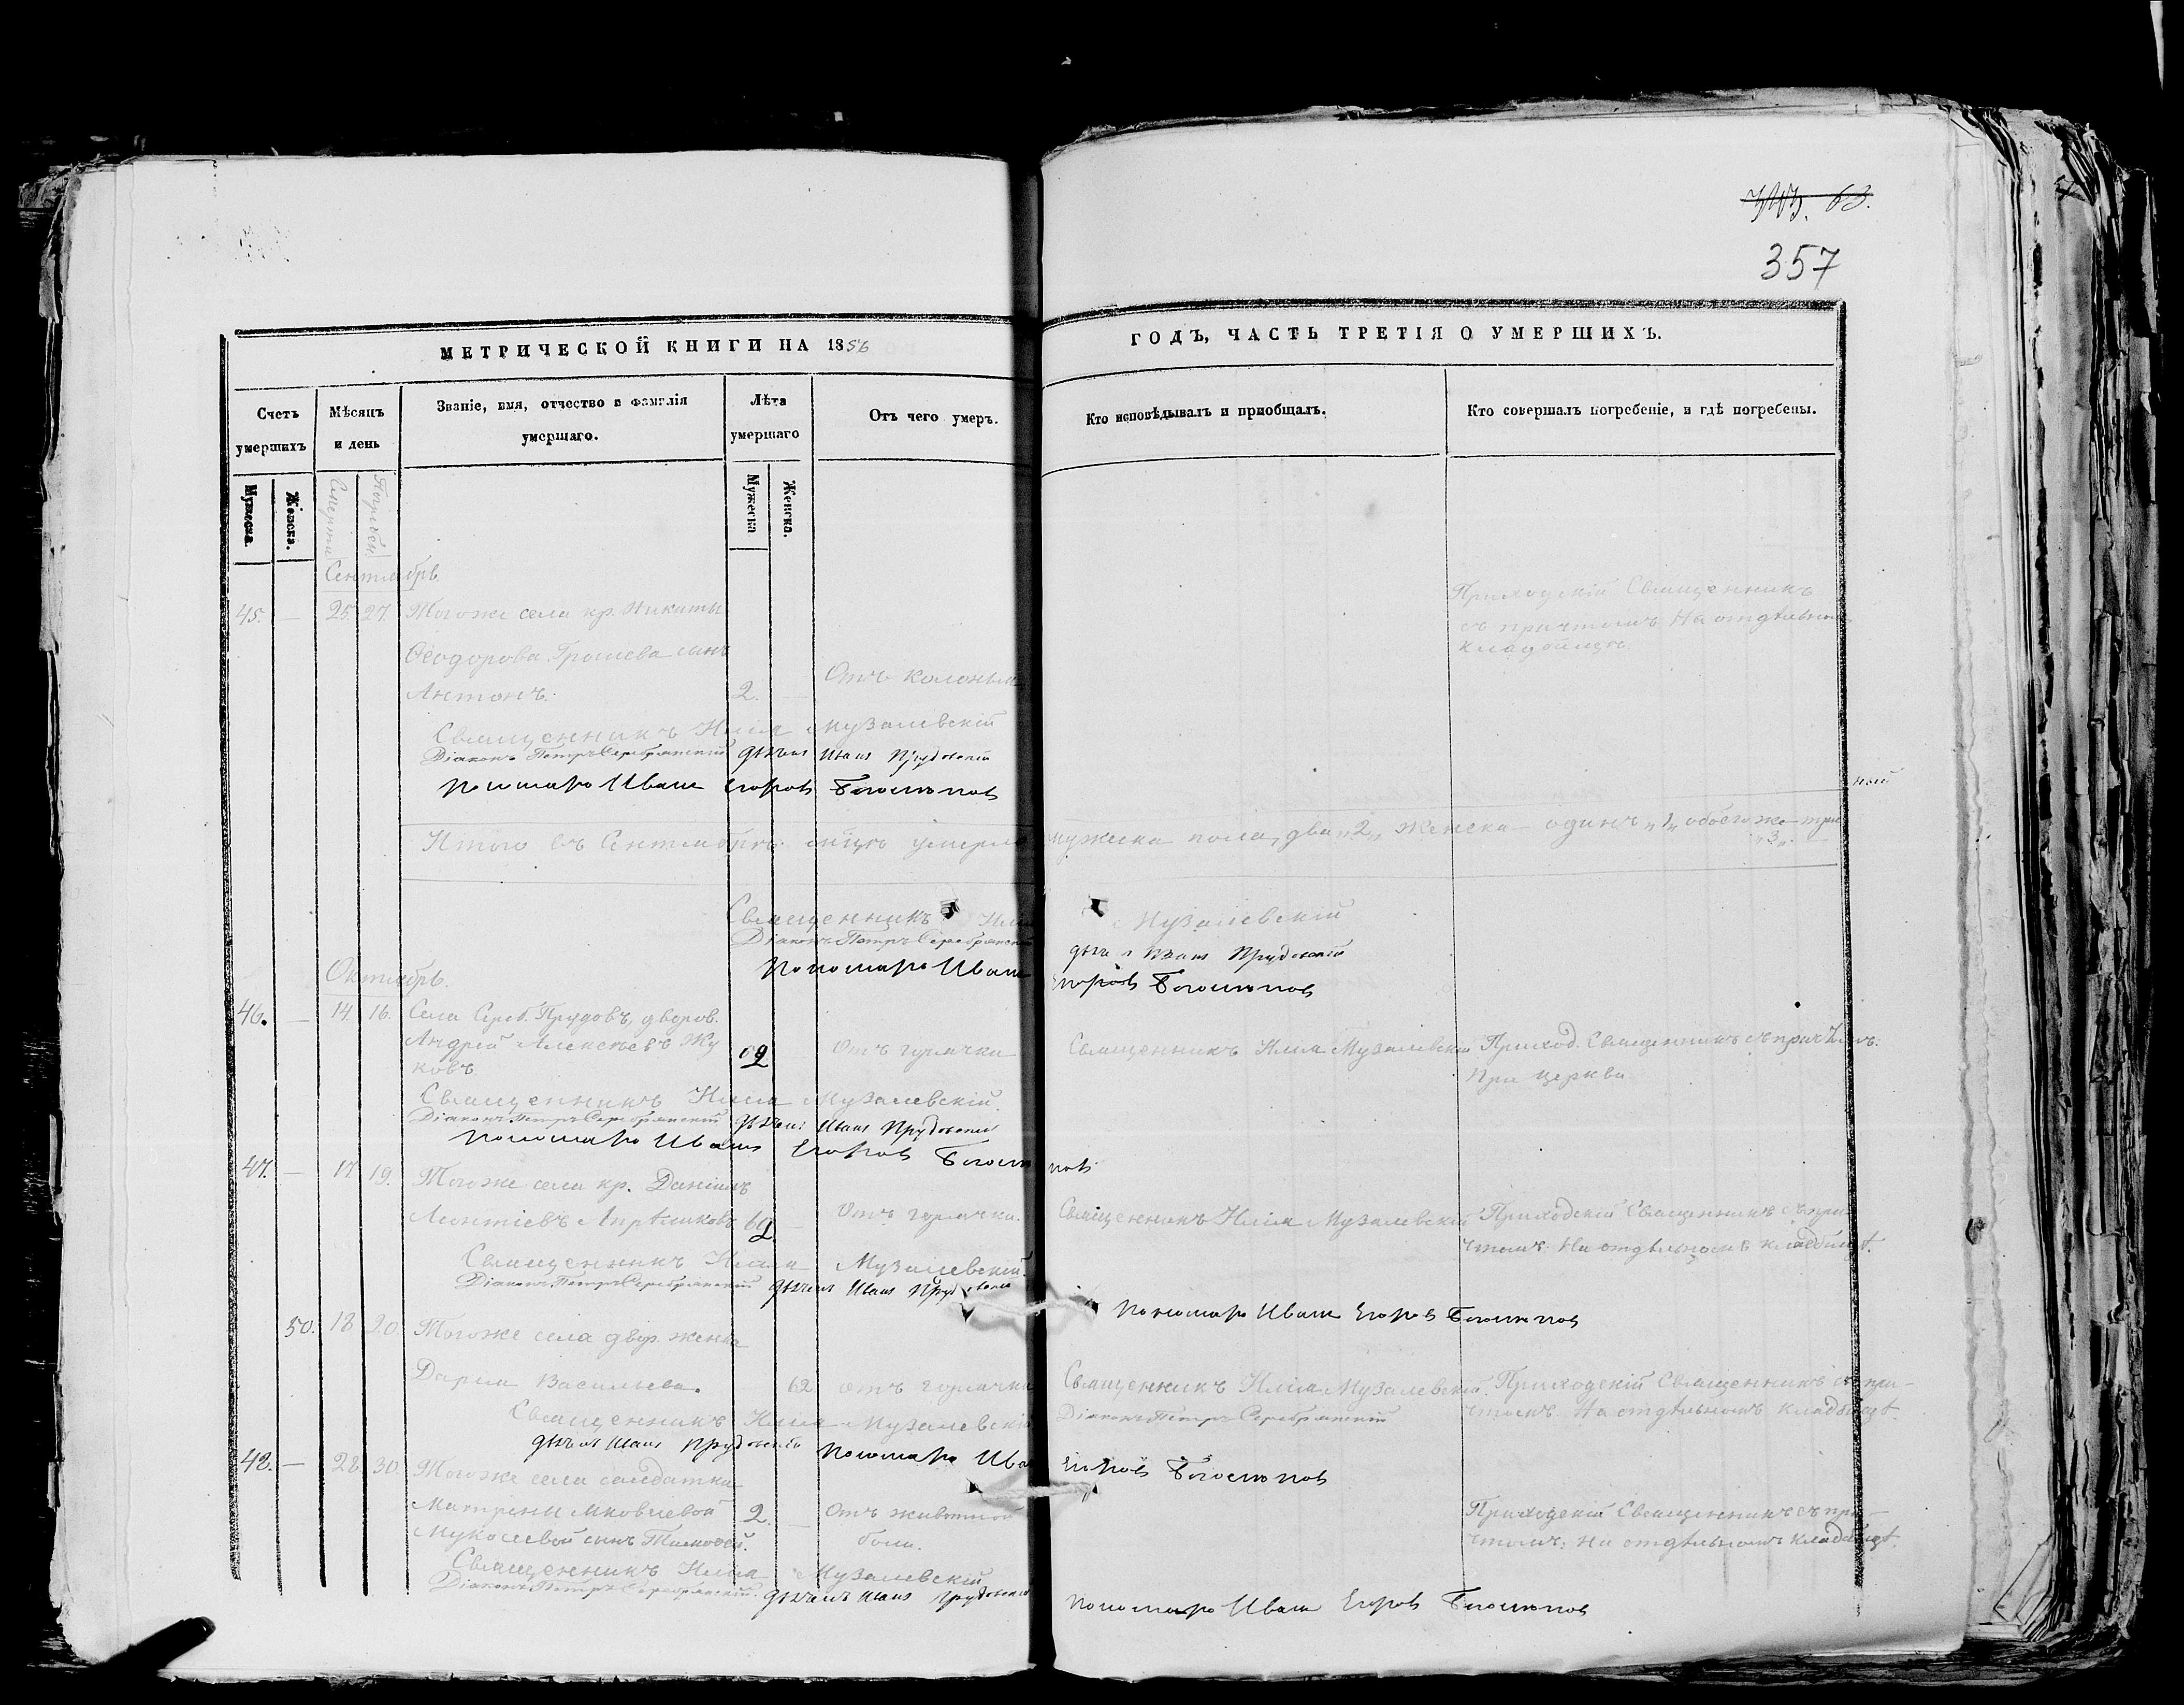 63.
357
МЕТРИЧЕСКОЙ КНИГИ НА 1856
ГОДЪ, ЧАСТЬ ТРЕТІЯ О УМЕРШИХЪ.
Счетъ умершихъ
Мѣсяцъ и день
Званіе, имя, отчество и фамилія умершаго.
Лѣта умершаго
Отъ чего умеръ.
Кто исповѣдывалъ и приобщалъ.
Кто совершалъ погребеніе, и гдѣ погребены.
Мужеска.
Женска.
Смерти
Погребен.
Мужеска
Женска.
Сентябрь
45. — 25. 27. Тогоже села кр. Никиты
Ѳеодорова Грошева сынъ
Антонъ. 2. —
Приходскій Священникъ
съ причтомъ. На отдѣльномъ
кладбищѣ
Священникъ Илія Музалевскій
Діаконъ Петръ Серебрянскій дьячекъ Иванъ Прудовскій
Пономарь Иванъ Егоровъ
Итого въ Сентябрѣ умерло мужеска пола два „2„ женска одинъ „1„ обоего же три
„3„
Священникъ Илія Музалевскій
Діаконъ Петръ Серебрянскій дьячекъ Иванъ Прудовскій
Пономарь Иванъ Егоровъ
Октябрь.
46. — 14. 16. Села Сереб. Прудовъ, дворов.
Андрей Алексѣевъ Жу
ковъ Отъ горячки Священникъ Илія Музалевскій Приход. Священникъ съ причтомъ.
При церкви
Священникъ Илія Музалевскій.
Діаконъ Петръ Серебрянскій дьячекъ Иванъ Прудовскій
Пономарь Иванъ Егоровъ
47. — 17. 19. Тогоже села кр. Даніилъ
Леонтіевъ — Отъ горячки. Священникъ Илія Музалевскій Приходскій Священникъ съ при
чтомъ. На отдѣльномъ кладбищѣ.
Священникъ Илія Музалевскій.
Діаконъ Петръ Серебрянскій дьячекъ Иванъ Прудовскій
Пономарь Иванъ Егоровъ
50. 18 20. Тогоже села двор. жена
Дарья Васильева. 62 отъ горячки Священникъ Илія Музалевскій. Приходскій Священникъ съ при-
чтомъ. На отдѣльномъ кладбищѣ.
Священникъ Илія Музалевскій Діаконъ Петръ Серебрянскій
дьячекъ Иванъ Прудовскій Пономарь Иванъ Егоровъ
48. — 28. 30. Тогоже села солдатки
Матрены Яковлевой 2. — Отъ животной Приходскій Священникъ съ при-
сынъ Тимофей. боли. чтомъ. На отдѣльномъ кладбищѣ.
Священникъ Илія Музалевскій
Діаконъ Петръ Серебрянскій. дьячекъ Иванъ Прудовскій Пономарь Иванъ Егоровъ